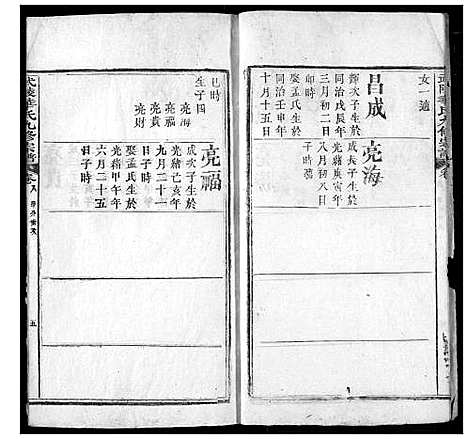 女一適
昌成
輝次子生於
同治戊辰年
三月初二日
卯時
娶孟氏生於
同治壬申年
十月十五日
巳時
生子四
亮海
亮福
亮貴
亮財
亮海
成長子生於
光緒庚寅年
八月初八日
亮福
成次子生於
光緒己亥年
九月二十一
日子時
娶孟氏生於
光緒甲午年
六月二十五
日子時
氏九修宗譜
卷八
五